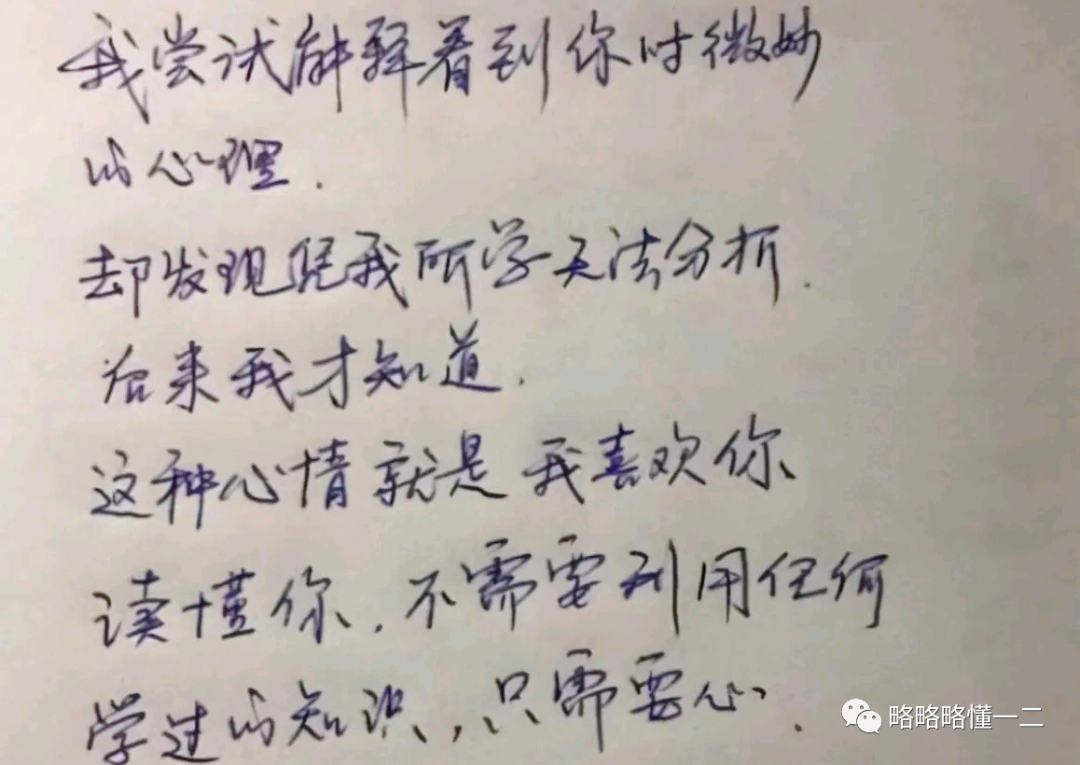 我尝试解释看到你时微妙
的心理.
却发现凭我所学无法分析.
后来我才知道.
这种心情就是我喜欢你
读懂你.不需要利用任何
学过的知识,只需要心.
略略略懂一二